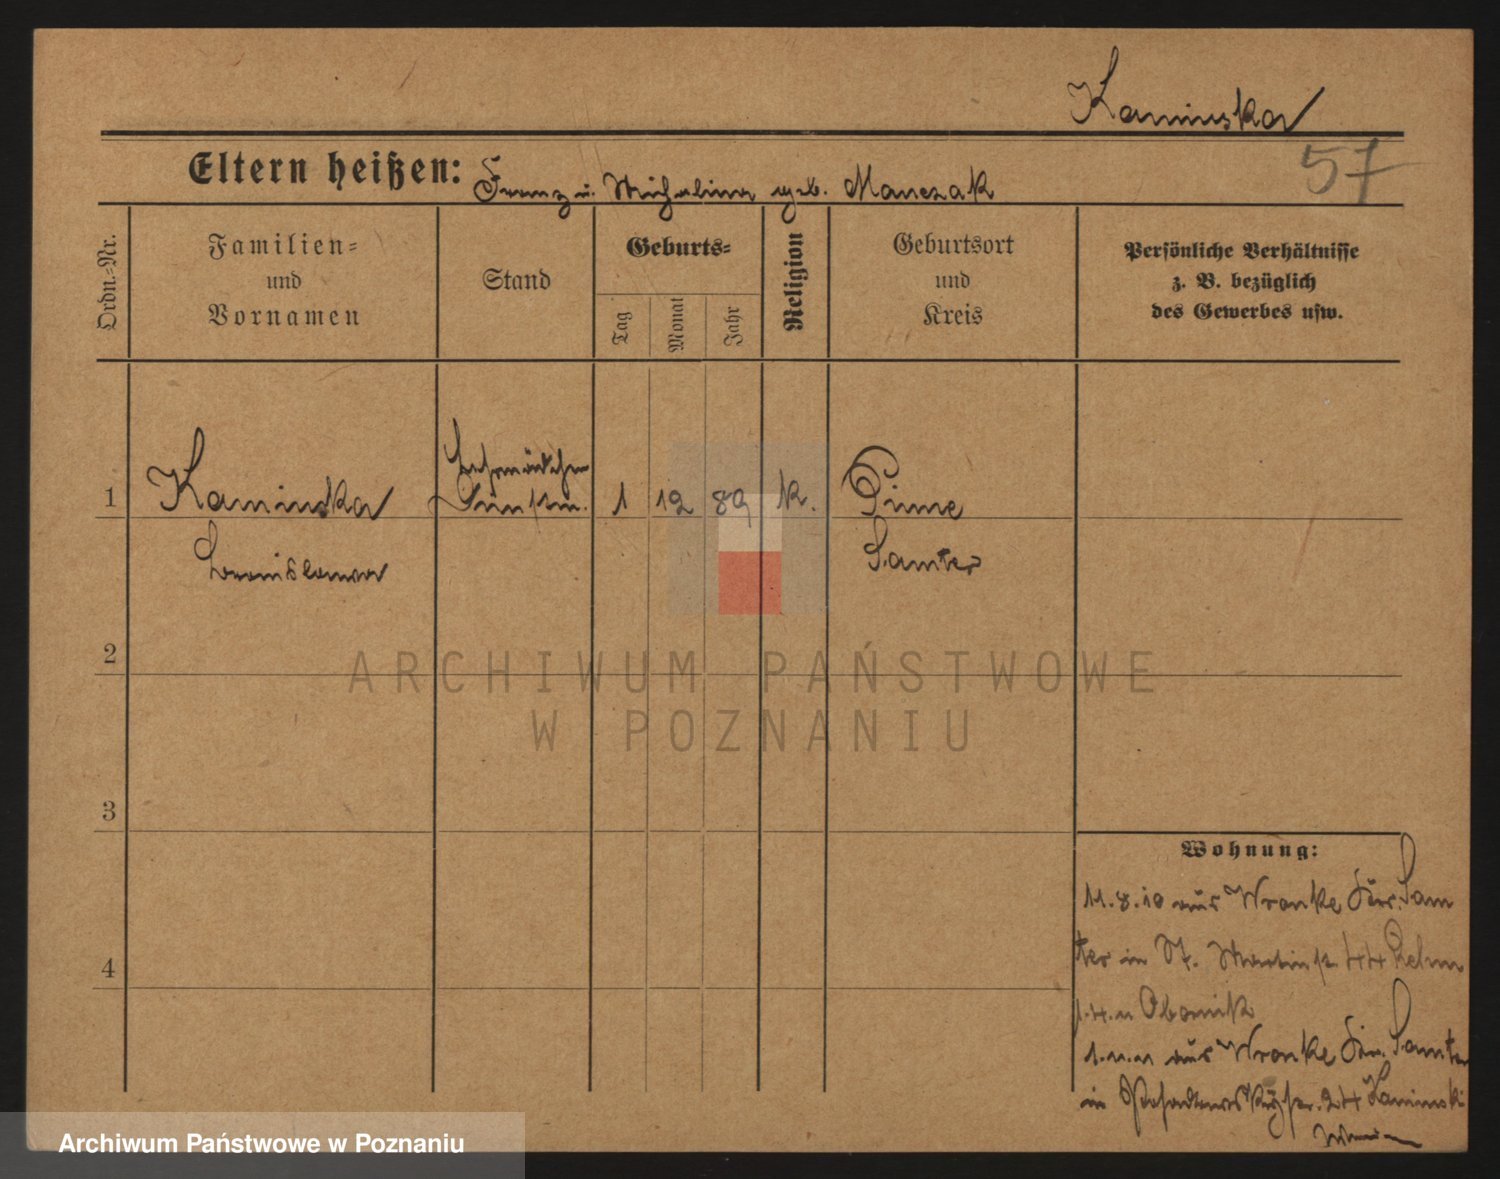 Kaminska
57
Eltern heißen: Franz u. Michalina geb. Manczak
Ordn.=Nr.
Familien=
und
Vornamen
Stand
Geburts=
Tag
Monat
Jahr
Religion
Geburtsort
und
Kreis
Persönliche Verhältnisse
z. B. bezüglich
des Gewerbes usw.
1 Kaminska 1 12 89 k. Pinne
Samter
2
ARCHIWUM PAŃSTWOWE
W POZNANIU
3
4
Wohnung:
11.8.10 aus Wronke Kr. Sam
ter in St. Martinstr. 44
Obornik
1.11.11 aus Wronke Kr. Samter
in 24 Kaminski
Archiwum Państwowe w Poznaniu